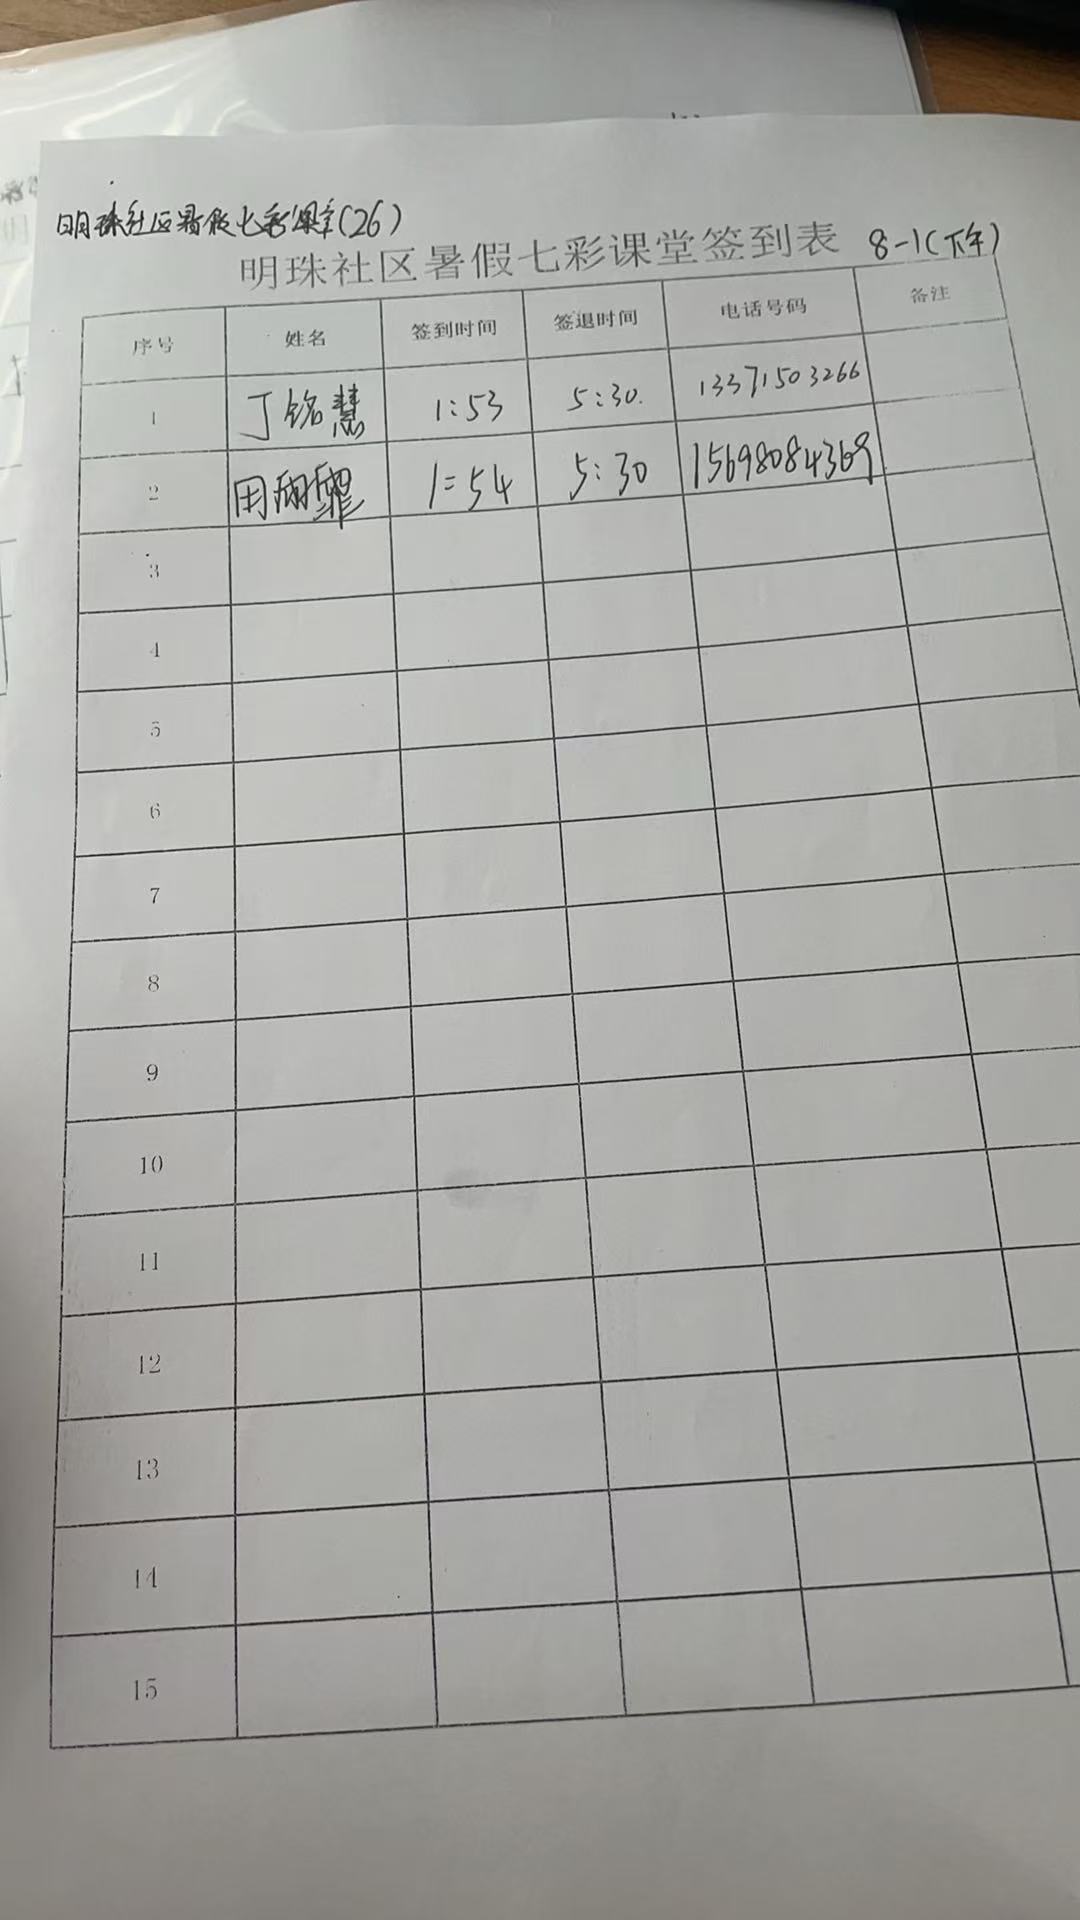 明珠社区暑假七彩课堂(26)
明珠社区暑假七彩课堂签到表 8-1(下午)
序号 姓名 签到时间 签退时间 电话号码 备注
1 丁铭慧 1:53 5:30. 13371503266
2 1:54 5:30 15698084369
3
4
5
6
7
8
9
10
11
12
13
14
15